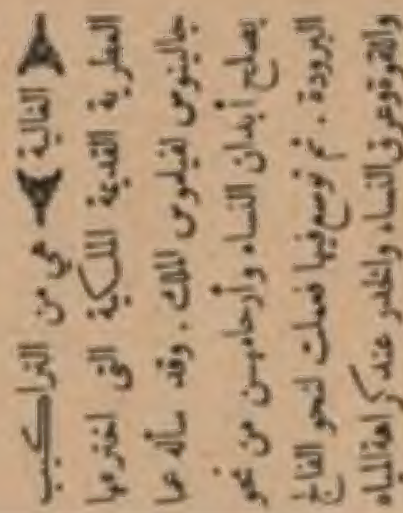 ﴿ الغالية ﴾ هي من التراكيب
العطرية القديمة الملكية التي اخترعها
جالينوس لفيلموس الملك . وقد سأله عما
يصلح أبدان النساء وأرحامهن من نحو
البرودة . ثم توسع فيها فعملت لنحو الفالج
واللقوة وعرق النساء والخدر عند كراهة المياه